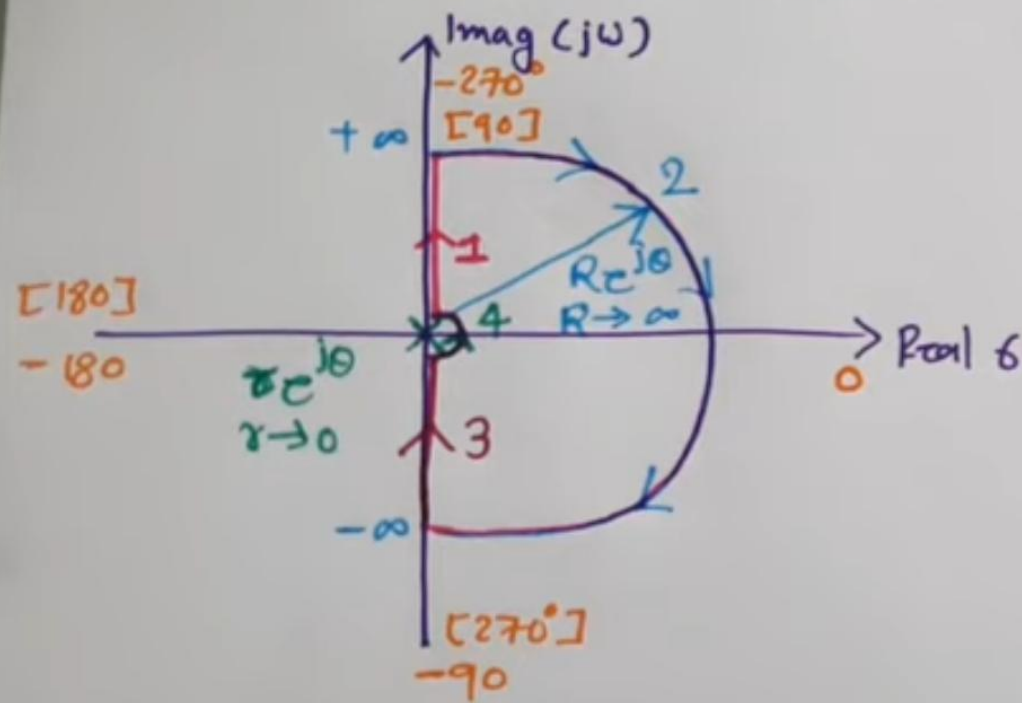 Imag (jω)
-270°
[90]
+ ∞
2
1
Re^jθ
R→ ∞
[180]
-180
4
Real σ
0
re^jθ
r→0
3
-∞
[270°]
-90